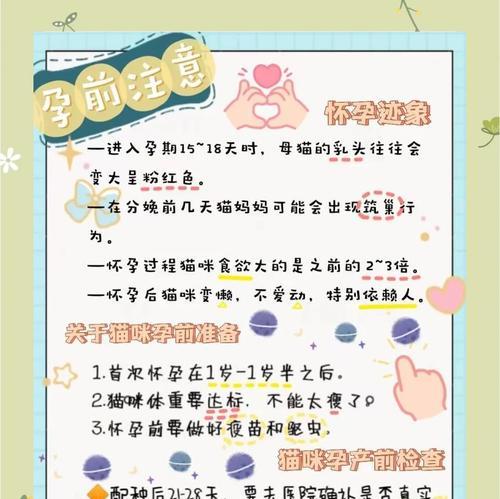 孕前注意
怀孕迹象
—进入孕期15~18天时，母猫的乳头往往会
变大呈粉红色。
—在分娩前几天猫妈妈可能会出现筑巢行
为。
—怀孕过程猫咪食欲大的是之前的2~3倍。
—怀孕后猫咪变懒，不爱动，特别依赖人。
关于猫咪孕前准备
1.首次怀孕在1岁-1岁半之后。
2.猫咪体重要达标，不能太瘦了。
3.怀孕前要做好疫苗和驱虫。
猫咪孕产前检查
配种后21-28天，要去医院确认是否真实